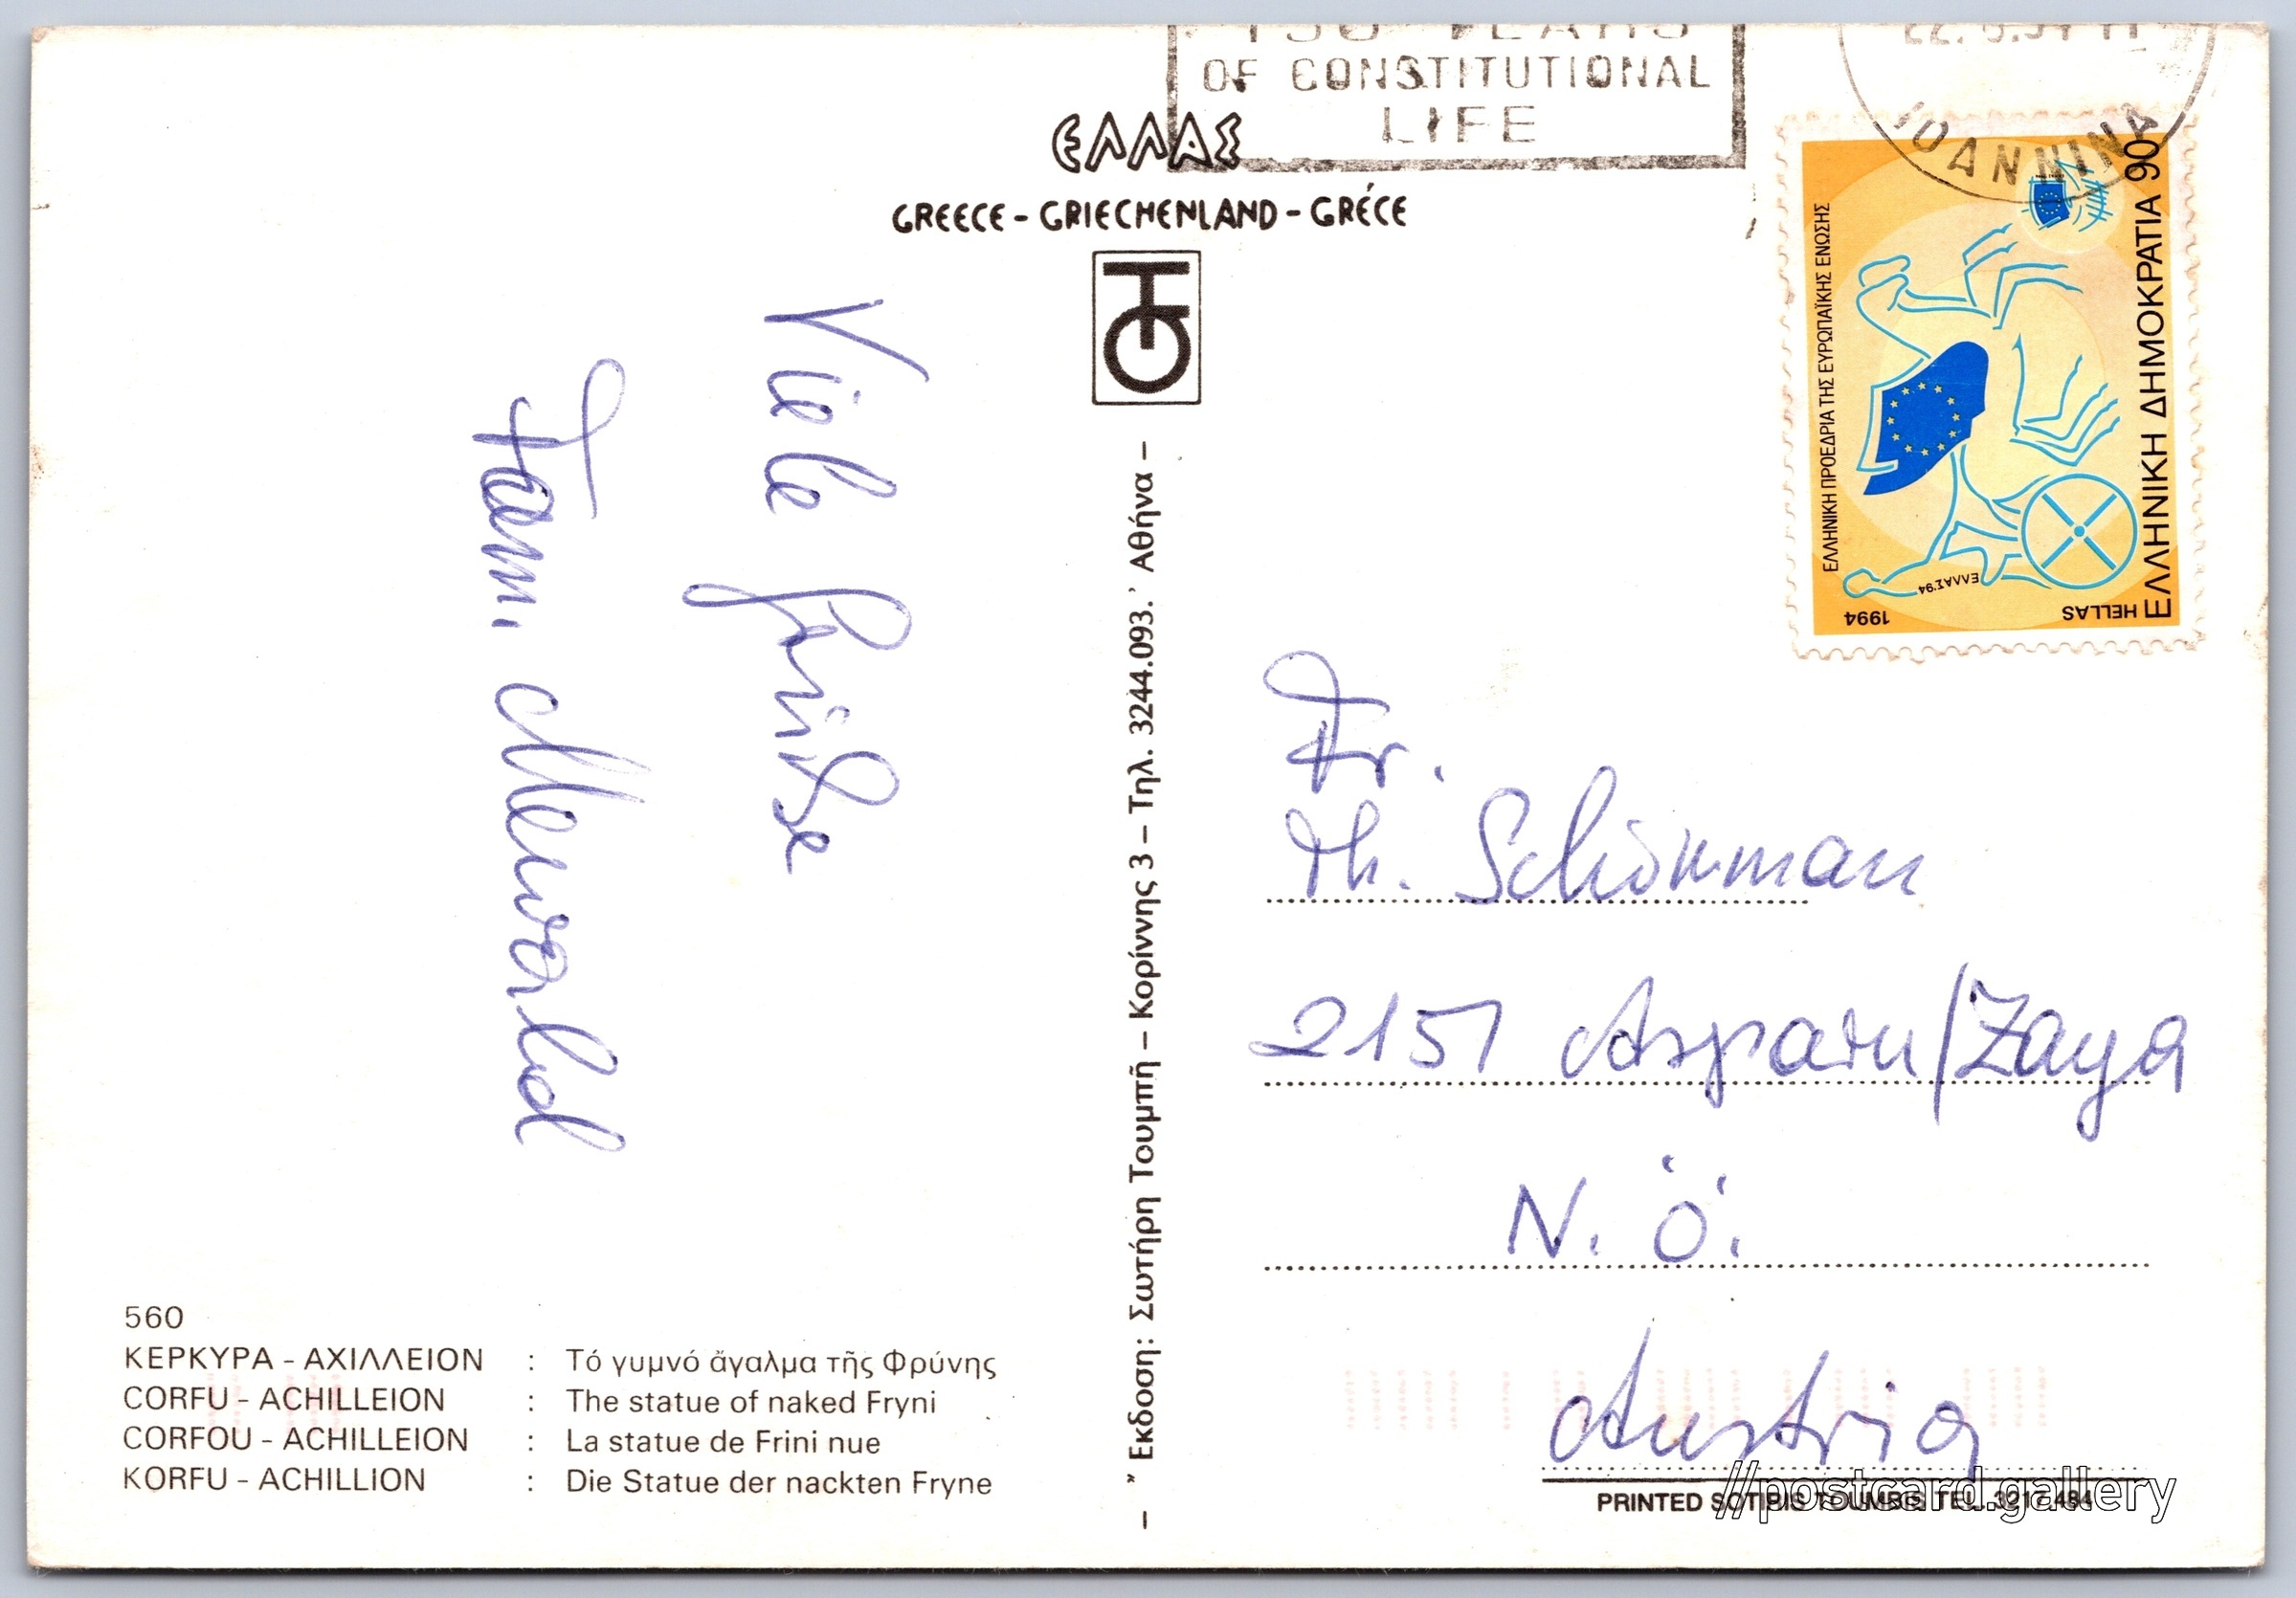 150 YEARS
OF CONSTITUTIONAL
LIFE
IOANNINA
ΕΛΛΑΣ
GREECE – GRIECHENLAND – GRÉCE
ΕΛΛΗΝΙΚΗ ΠΡΟΕΔΡΙΑ ΤΗΣ ΕΥΡΩΠΑΪΚΗΣ ΕΝΩΣΗΣ
ΕΛΛΗΝΙΚΗ ΔΗΜΟΚΡΑΤΙΑ 90
HELLAS
1994
ΕΛΛΑΣ '94
Viele Grüße
Fam.
Fr.
Th. Schönman
2151 Asparn/Zaya
N. Ö.
Austria
– "Εκδοση: Σωτήρη Τουμπῆ – Κορίννης 3 – Τηλ. 3244.093. ᾿Αθήνα –
560
ΚΕΡΚΥΡΑ – ΑΧΙΛΛΕΙΟΝ : Τό γυμνό ἄγαλμα τῆς Φρύνης
CORFU – ACHILLEION : The statue of naked Fryni
CORFOU – ACHILLEION : La statue de Frini nue
KORFU – ACHILLION : Die Statue der nackten Fryne
PRINTED SOTIRIS TOUMBIS TEL. 3217.484
//postcard.gallery